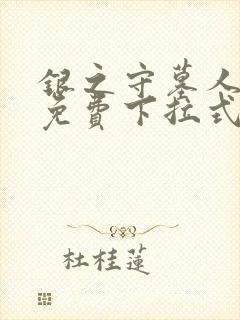 银之守墓人
免費下拉式
杜桂蓮